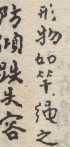 形物如竿绳之
防倾跌失容